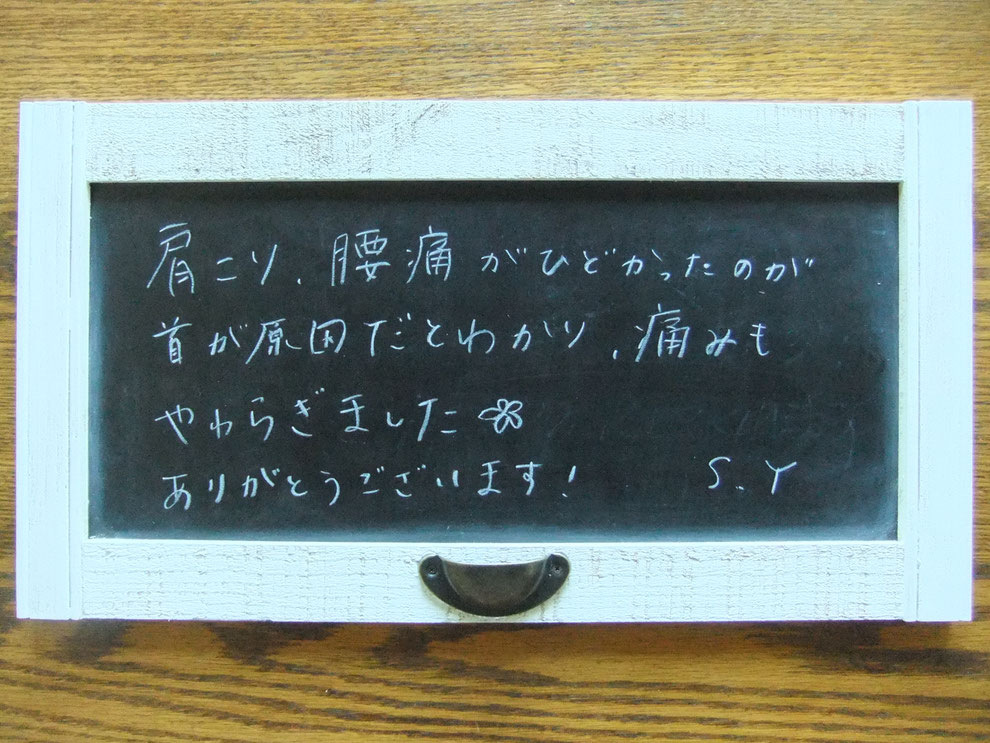 肩こり、腰痛がひどかったのが
首が原因だとわかり、痛みも
やわらぎました
ありがとうございます! S.Y